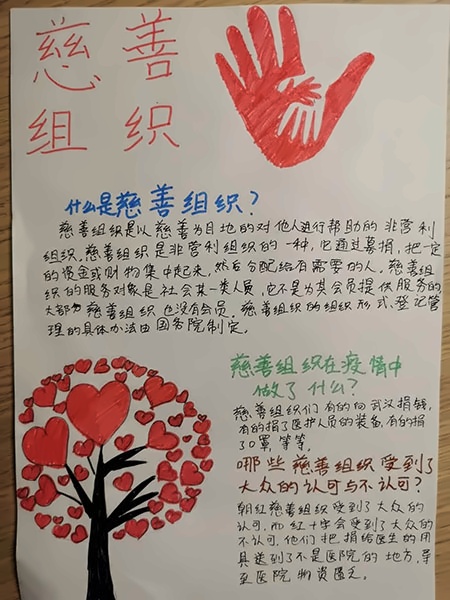 慈善
组织
什么是慈善组织？
慈善组织是以慈善为目地的对他人进行帮助的非营利
组织。慈善组织是非营利组织的一种，它通过募捐，把一定
的资金或财物集中起来，然后分配给有需要的人。慈善组
织的服务对象是社会某一类人员，它不是为其会员提供服务的
大部分慈善组织也没有会员。慈善组织的组织形式登记管
理的具体办法由国务院制定。
慈善组织在疫情中
做了什么？
慈善组织们有的向武汉捐钱，
有的捐了医护人员的装备，有的捐
了口罩，等等。
哪些慈善组织受到了
大众的认可与不认可？
朝红慈善组织受到了大众的
认可，而红十字会受到了大众的
不认可，他们把捐给医生的用
具送到了不是医院的地方，导
至医院物资匮乏。